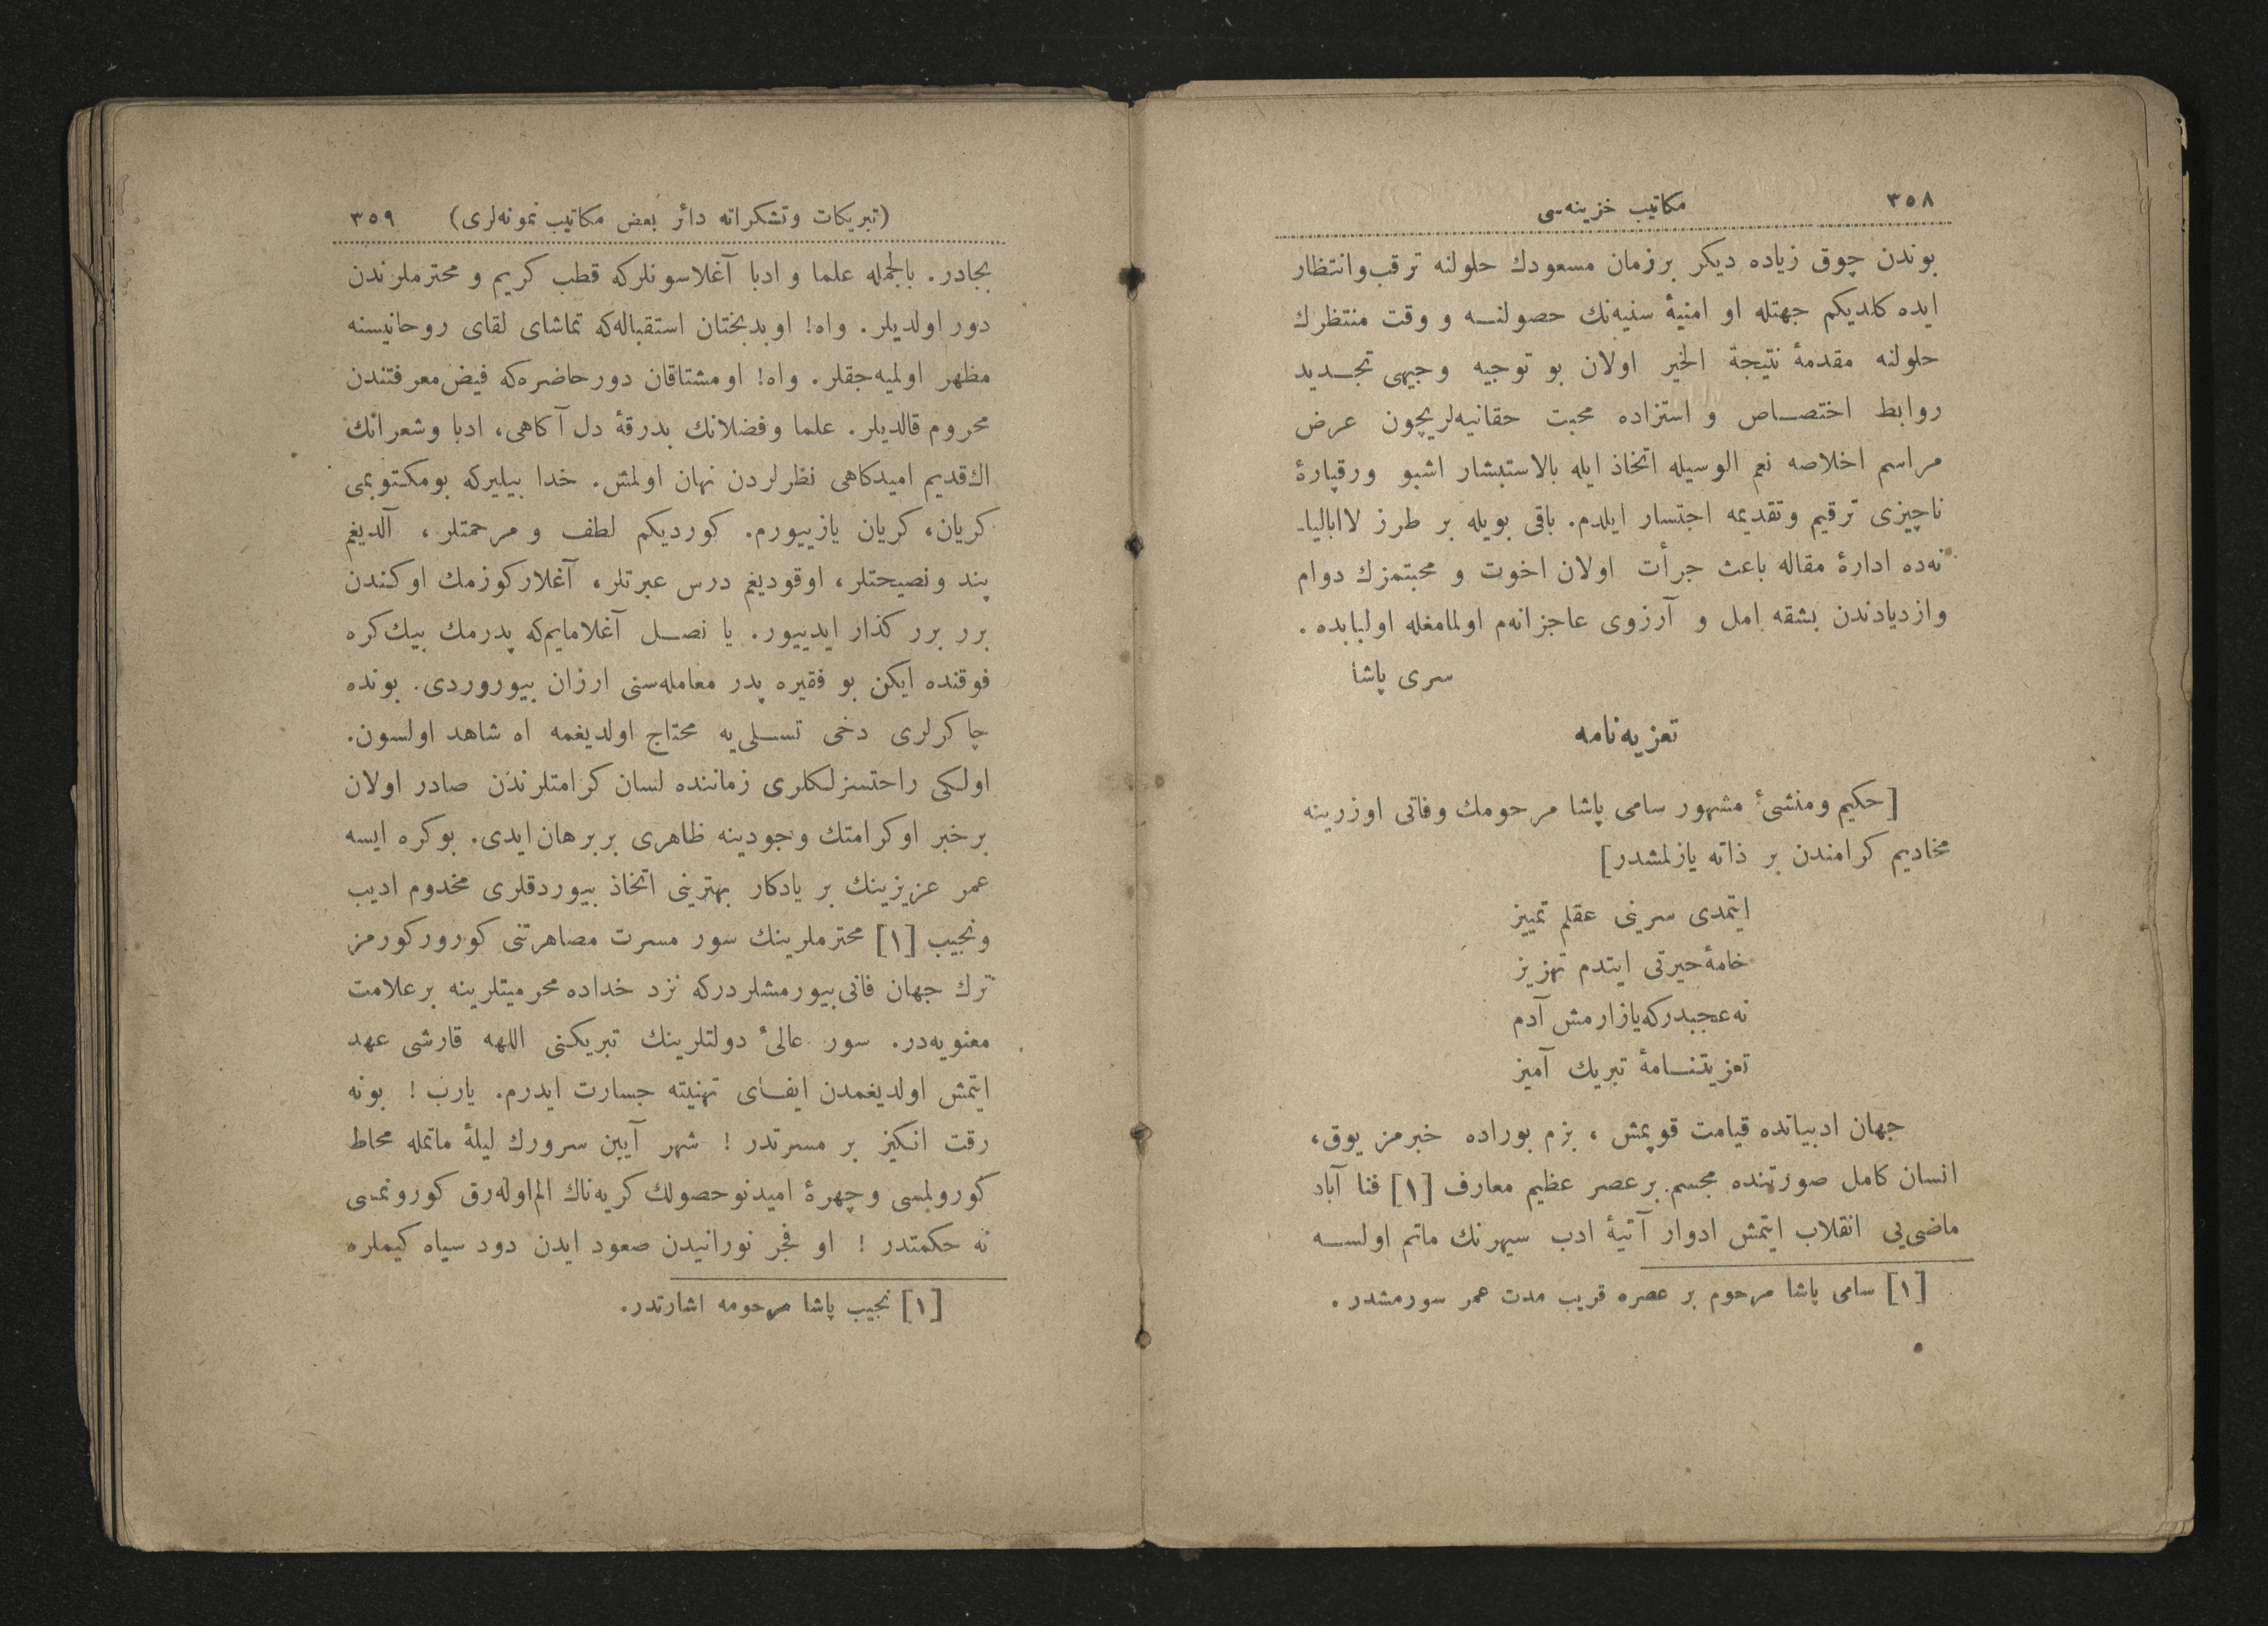 ٣٥٨
مكاتيب خزينه‌سى
بوندن چوق زياده ديكر برزمان مسعودك حلولنه ترقب‌وانتظار
ايده كلديكم جهتله او امنيۀ سنيه‌نك حصولنـه و وقت منتظرك
حلولنه مقدمۀ نتيجة الخير اولان بو توجيه وجيهى تجـديد
روابط اختصـاص و استزاده محبت حقانيه‌لريچون عرض
مراسم اخلاصه نعم الوسيله اتخاذ ايله بالاستبشار اشبو ورقپارۀ
ناچيزى ترقيم وتقديمه اجتسار ايلدم. باقى بويله بر طرز لاابالیا-
نه‌ده ادارۀ مقاله باعث جرأت اولان اخوت و محبتمزك دوام
وازديادندن بشقه امل و آرزوى عاجزانه‌م اولمامغله اولبابده .
سرى پاشا
تعزيه‌نامه
[حكيم ومنشئ مشهور سامى پاشا مرحومك وفاتى اوزرينه
مخاديم كرامندن بر ذاته يازلمشدر]
ايتمدى سرينى عقلم تمييز
خامۀ‌حيرتى ايتدم تهزيز
نه‌عجبدركه‌يازارمش آدم
تعزيتنـامۀ تبريك آميز
جهان ادبياتده قيامت قوپمش ، بزم بوراده خبرمز يوق،
انسان كامل صورتنده مجسم برعصر عظيم معارف [١] فنا آباد
ماضى‌يى انقلاب ايتمش ادوار آتيۀ ادب سپهرنك ماتم اولسـه
[١] سامى پاشا مرحوم بر عصره قريب مدت عمر سورمشدر .
(تبريكات وتشكراته دائر بعض مكاتيب نمونه‌لرى)
٣٥٩
بجادر. بالجمله علما و ادبا آغلاسونلركه قطب كريم و محترملرندن
دور اولديلر. واه! اوبدبختان استقباله‌كه تماشاى لقاى روحانيسنه
مظهر اولميه‌جقلر. واه! اومشتاقان دورحاضره‌كه فيض‌معرفتندن
محروم قالديلر. علما وفضلانك بدرقۀ دل آكاهى، ادبا وشعرانك
اك‌قديم اميدكاهى نظرلردن نهان اولمش. خدا بيليركه بومكتوبمى
كريان، كريان يازييورم. كورديكم لطف و مرحمتلر ، آلديغم
پند ونصيحتلر، اوقوديغم درس عبرتلر، آغلاركوزمك اوكندن
برر برر كذار ايدييور. يا نصـل آغلامايم‌كه پدرمك بيك كره
فوقنده ايكن بو فقيره پدر معامله‌سنى ارزان بيوروردى. بونده
چاكرلرى دخى تسـلى‌يه محتاج اولديغمه اه شاهد اولسون.
اولكى راحتسزلكلرى زماننده لسان كرامتلرندن صادر اولان
برخبر اوكرامتك وجودينه ظاهرى بربرهان‌ايدى. بوكره ايسه
عمر عزيزينك بر يادكار بهترينى اتخاذ بيوردقلرى مخدوم اديب
ونجيب [١] محترملرينك سور مسرت مصاهرتنى كوروركورمز
ترك جهان فانى‌بيورمشلردركه نزد خداده محرميتلرينه برعلامت
معنويه‌در. سور عالئ دولتلرينك تبريكنى اللهه قارشى عهد
ايتمش اولديغمدن ايفـاى تهنيته جسارت ايدرم. يارب ! بونه
رقت انكيز بر مسرتدر ! شهر آيين سرورك ليلۀ ماتمله محاط
كورولمسى وچهرۀ اميدنوحصولك كريه‌ناك الم‌اوله‌رق كورونمسى
نه حكمتدر ! او فجر نورانيدن صعود ايدن دود سياه كيملره
[١] نجيب پاشا مرحومه اشارتدر.